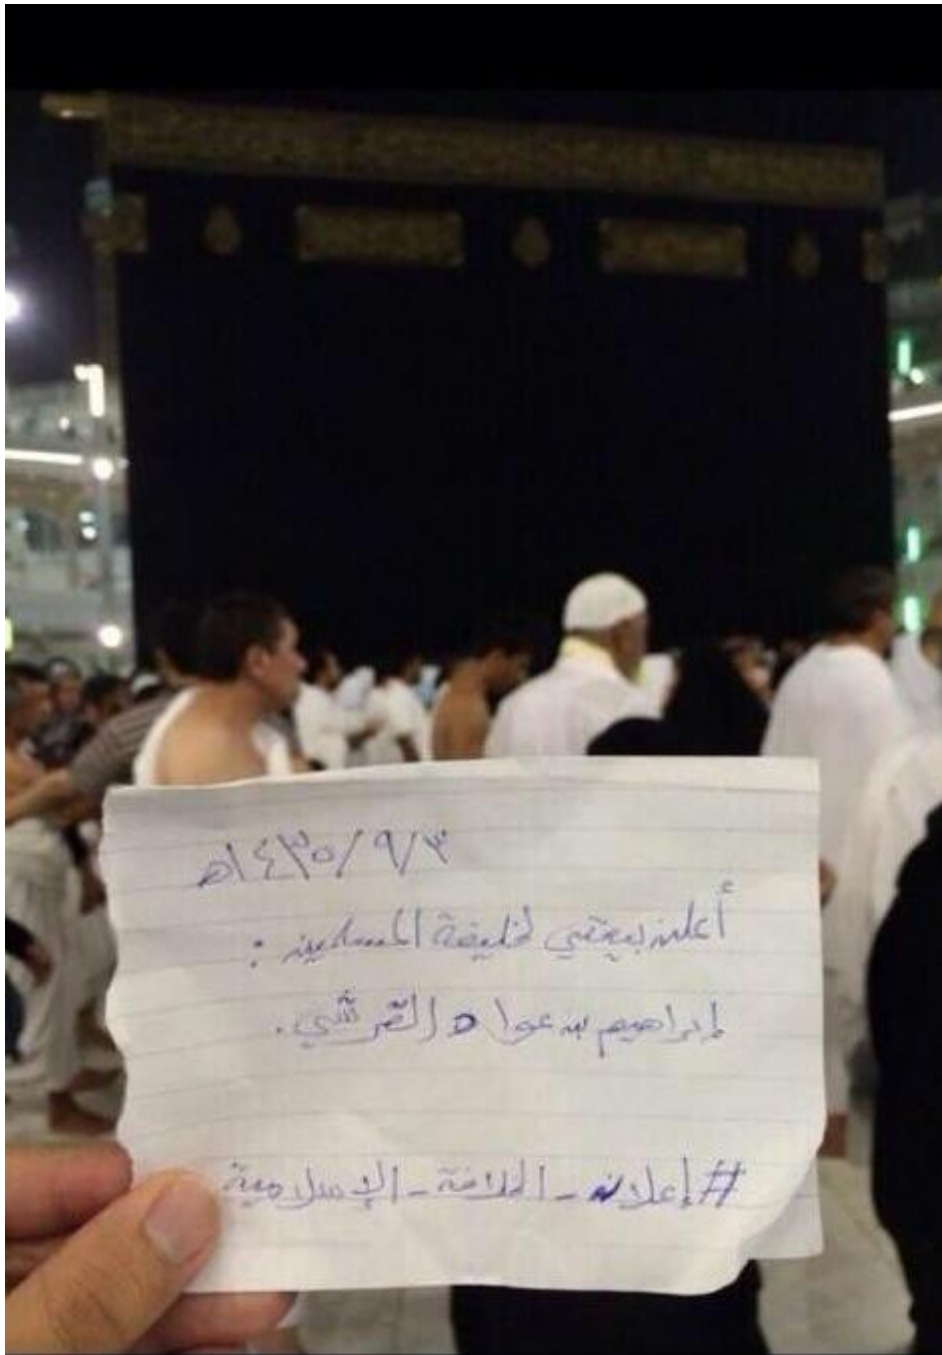 ١٤٣٥/٩/٣هـ
أعلن بيعتي لخليفة المسلمين :
إبراهيم بن عواد القرشي .
#إعلان_الخلافة_الإسلامية